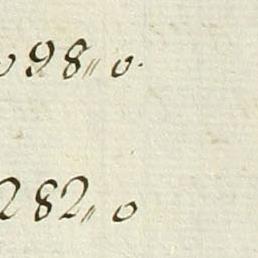 098〃 0.
282〃 0